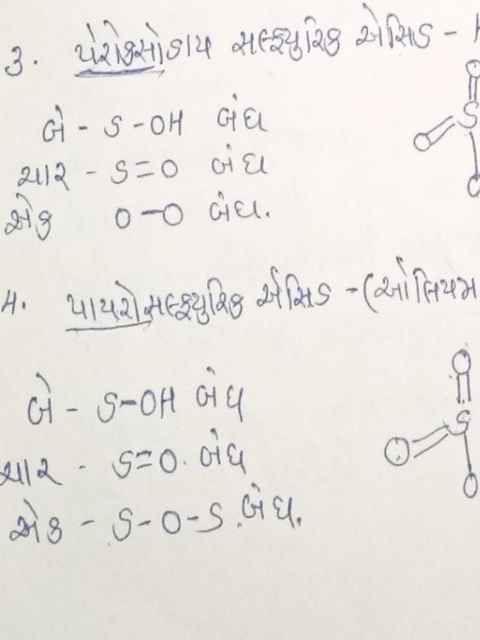 3. પેરોક્સોડાય સલ્ફ્યુરિક એસિડ - H
બે - S - OH બંધ
ચાર - S=O બંધ
એક O-O બંધ.
4. પાયરોસલ્ફ્યુરિક એસિડ - (ઓલિયમ
બે - S-OH બંધ
ચાર - S=O. બંધ
એક - S-O-S બંધ.
O
S
O
O
O
S
O
O